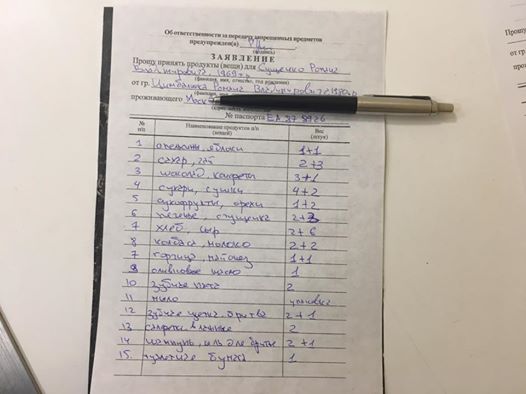 Об ответственности за передачу запрещенных предметов
предупрежден(а)
(подпись)
ЗАЯВЛЕНИЕ
Прошу принять продукты (вещи) для Сущенко Роман
Владимирович, 1969 г.р.
(фамилия, имя, отчество, год рождения)
от гр. Цимбалюка Роман Владимирович
проживающего Москва
№ паспорта
№ п/п Наименование продуктов п/п (вещей) Вес (штук)
1 апельсины, яблоки 1+1
2 сахар, чай 2+3
3 шоколад, конфеты
4 сухари, сушки 4+2
5 сухофрукты, орехи 1+2
6 печенье, сгущенка
7 хлеб, сыр 2+6
8 колбаса, молоко 2+2
7 горчица, майонез 1+1
9 оливковое масло 1
10 зубная паста 2
11 мыло упаковка
12 зубная щетка, бритва 2+1
13 салфетки влажные 2
14 шампунь, гель для бритья 2+1
15. туалетная бумага 1